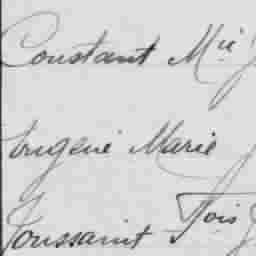 Constant Mie
Eugène Marie
Toussaint Fois